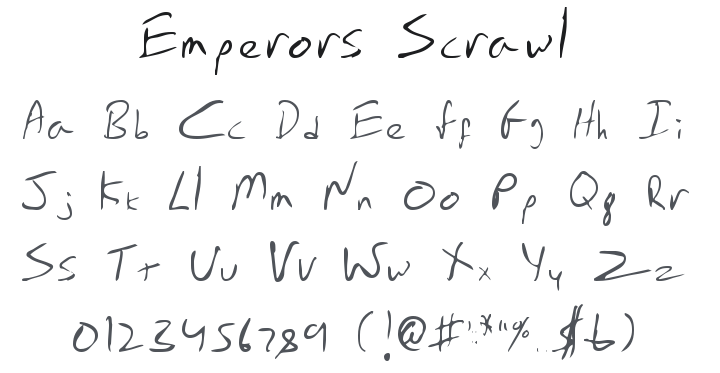 Emperors Scrawl
Aa Bb Cc Dd Ee Ff Gg Hh Ii
Jj Kk Ll Mm Nn Oo Pp Qq Rr
Ss Tt Uu Vv Ww Xx Yy Zz
0123456789 (!@#'.*"%..$6)